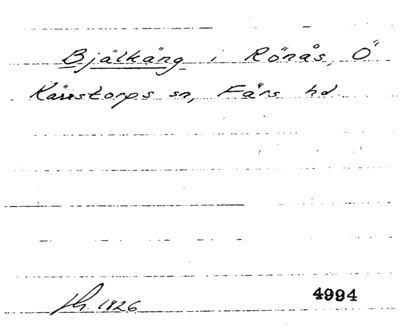 Bjälkäng i Rönås, Ö
Kärrstorps sn, Färs hd
1826
4994